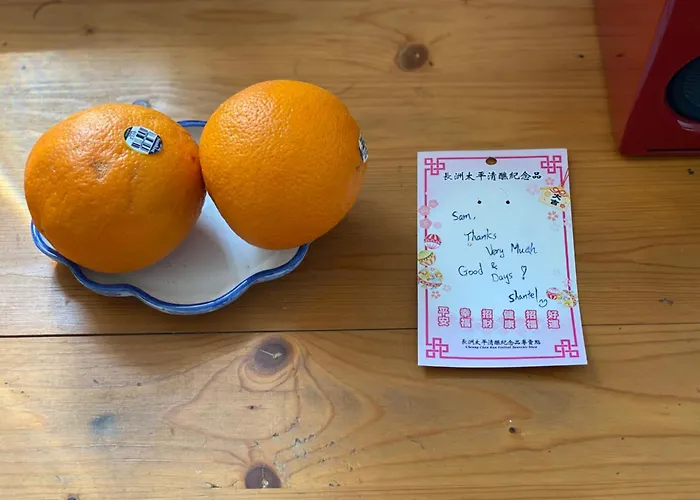 長洲太平清醮紀念品
Sam,
Thanks
Very Much
Good &
Days !
Shantel
平安 幸福 招財 健康 招福 好運
長洲太平清醮紀念品專賣點
Cheung Chau Bun Festival Souvenirs Store